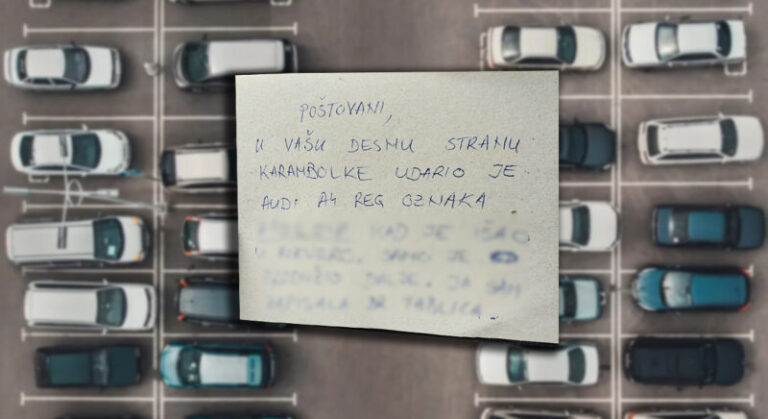 POŠTOVANI,
U VAŠU DESNU STRANU
KARAMBOLKE UDARIO JE
AUDI A4 REG OZNAKA
KAD JE IŠAO
U RIKVERC. SAMO JE
PRODUŽIO DALJE. JA SAM
ZAPISALA BR TABLICA.